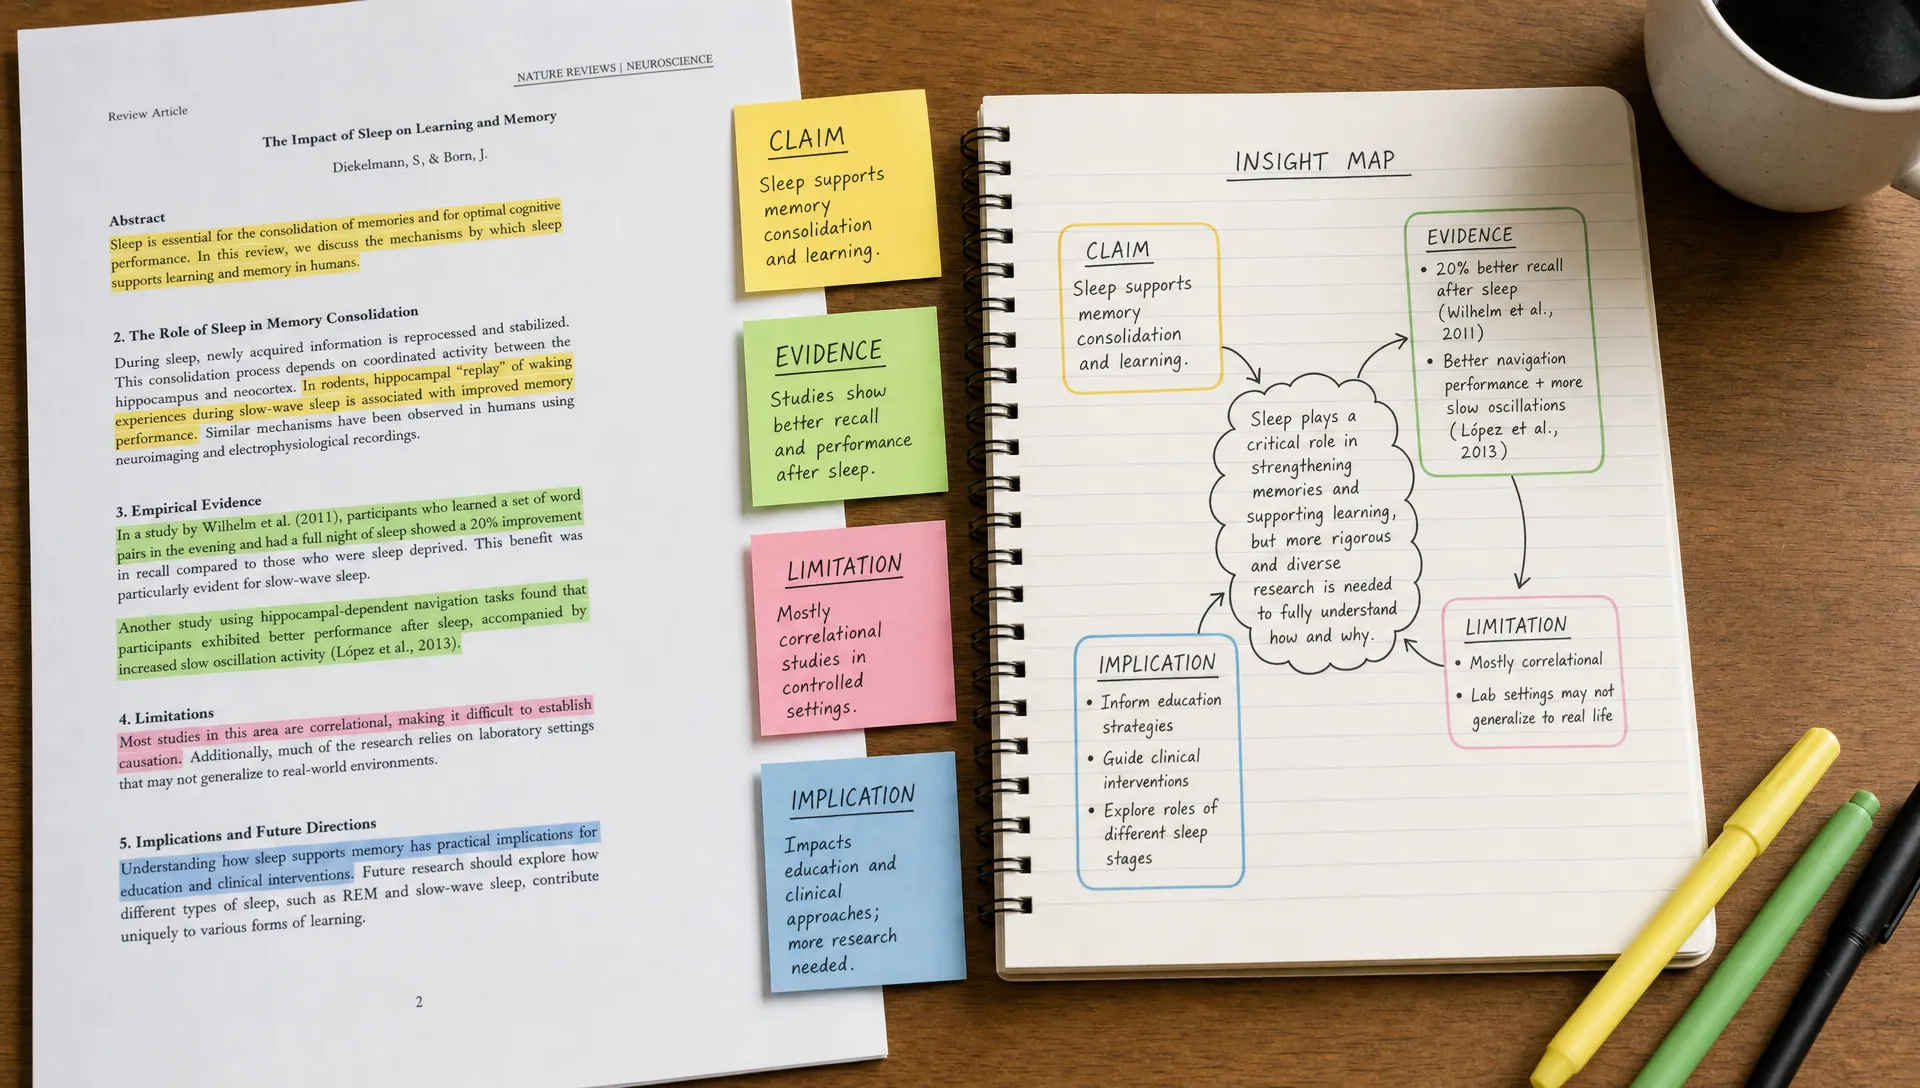 NATURE REVIEWS | NEUROSCIENCE
Review Article
The Impact of Sleep on Learning and Memory
Diekelmann, S, & Born, J.
Abstract
Sleep is essential for the consolidation of memories and for optimal cognitive
performance. In this review, we discuss the mechanisms by which sleep
supports learning and memory in humans.
2. The Role of Sleep in Memory Consolidation
During sleep, newly acquired information is reprocessed and stabilized.
This consolidation process depends on coordinated activity between the
hippocampus and neocortex. In rodents, hippocampal “replay” of waking
experiences during slow-wave sleep is associated with improved memory
performance. Similar mechanisms have been observed in humans using
neuroimaging and electrophysiological recordings.
3. Empirical Evidence
In a study by Wilhelm et al. (2011), participants who learned a set of word
pairs in the evening and had a full night of sleep showed a 20% improvement
in recall compared to those who were sleep deprived. This benefit was
particularly evident for slow-wave sleep.
Another study using hippocampal-dependent navigation tasks found that
participants exhibited better performance after sleep, accompanied by
increased slow oscillation activity (López et al., 2013).
4. Limitations
Most studies in this area are correlational, making it difficult to establish
causation. Additionally, much of the research relies on laboratory settings
that may not generalize to real-world environments.
5. Implications and Future Directions
Understanding how sleep supports memory has practical implications for
education and clinical interventions. Future research should explore how
different types of sleep, such as REM and slow-wave sleep, contribute
uniquely to various forms of learning.
2
CLAIM
Sleep supports
memory
consolidation
and learning.
EVIDENCE
Studies show
better recall
and performance
after sleep.
LIMITATION
Mostly
correlational
studies in
controlled
settings.
IMPLICATION
Impacts
education and
clinical
approaches;
more research
needed.
INSIGHT MAP
CLAIM
Sleep supports
memory
consolidation
and learning.
EVIDENCE
• 20% better recall
after sleep
(Wilhelm et al.,
2011)
• Better navigation
performance + more
slow oscillations
(López et al.,
2013)
Sleep plays a
critical role in
strengthening
memories and
supporting learning,
but more rigorous
and diverse
research is needed
to fully understand
how and why.
IMPLICATION
• Inform education
strategies
• Guide clinical
interventions
• Explore roles of
different sleep
stages
LIMITATION
• Mostly correlational
• Lab settings may not
generalize to real life